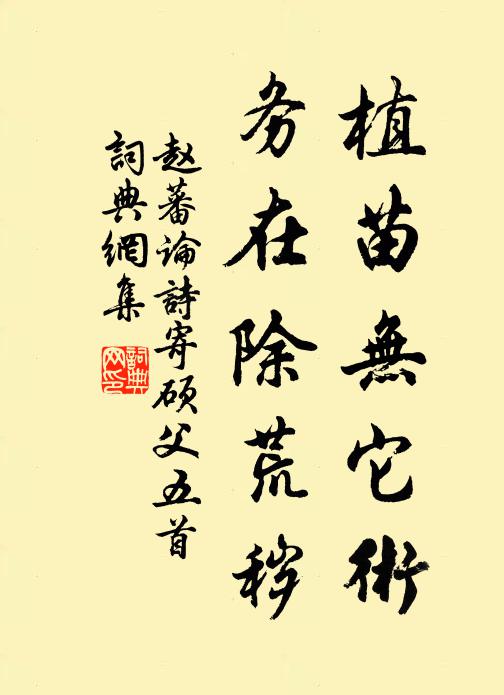 植苗無它術
务在除荒秽
赵蕃论詩寄硕父五首
詞典網集
詞典
网印